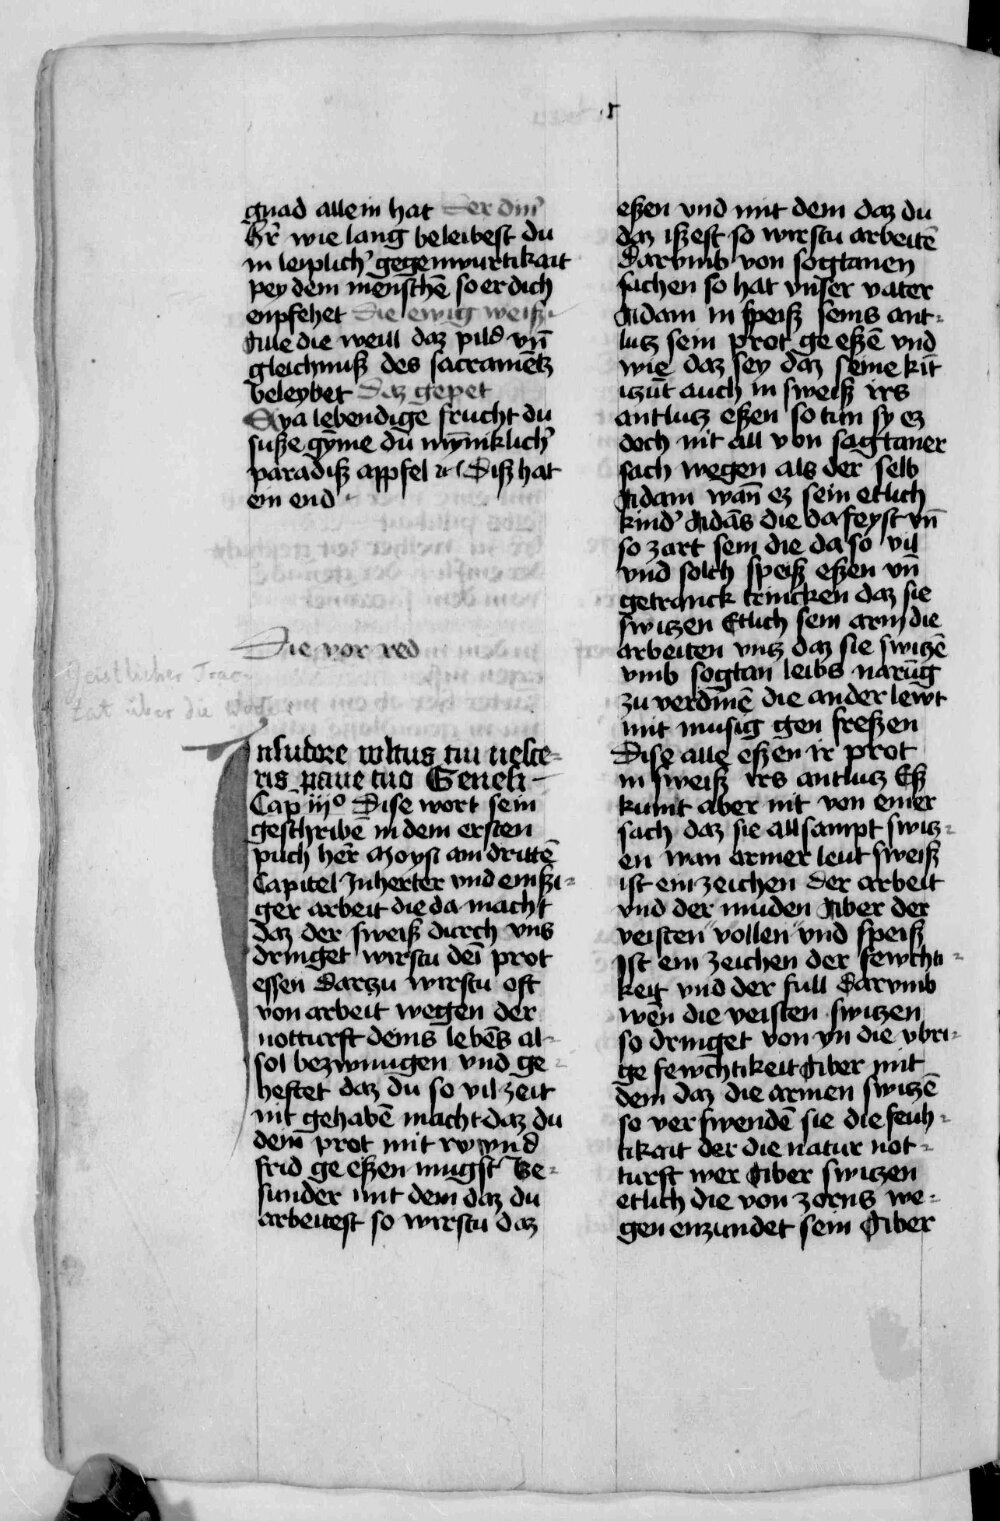 gnad allein hat Der din̄
Er̄ wie lang beleibest du
in leiplich' gegenwurtikait
pey dem menschē so er dich
enpfehet Die ewig weiß
Alle die weill daz pild vn̄
gleichnuß des sacramētz
beleybet Daz gepet
Eya lebendige frucht du
suße gȳme du mȳniklich'
paradiß appfel Diß hat
ein end
Die vor red
Geistlicher Trac-
tat über die
In sudore vultus tui vesce-
ris pane tuo Genesi
Cap iijº Dise wort sein
geschribē in dem ersten
puch her̄ Moysi am drittē
Capitel In herter vnd emßi-
ger arbeit die da macht
daz der sweiß durch vns
dringet wirstu dei prot
essen Dartzu wirstu oft
von arbeit wegen der
notturft deins lebēs al-
sol bezwungen vnd ge-
heftet daz du so vil zeit
nit gehabē macht daz du
dein̄ prot mit rw vnd
frid ge eßen mugst Be-
sunder mit dem daz du
arbeitest so wirstu daz
eßen vnd mit dem daz du
daz ißest so wirstu arbeitē
Darvmb von sogtanen
sachen so hat vnser vater
Adam in speiß seins ant-
lutz sein prot ge eßē vnd
wie daz sey daz seine kīt
itzūt auch in sweiß irs
antlutz eßen so tun sy ez
doch nit all von sagtaner
sach wegen als der selb
Adam wan̄ ez sein etlich
kind' Adās die da feyst vn̄
so zart sein die da so vil
vnd solch speiß eßen vn̄
getranck trincken daz sie
switzen Etlich sein arm die
arbeiten vntz daz sie switzē
vmb sogtan leibs narūg
zu verdinē die ander lewt
mit musig gen freßen
Dise alle eßen ir prot
in sweiß irs antlutz Eß
kumt aber nit von einer
sach daz sie allsampt switz-
en wan armer leut sweiß
ist ein zeichen der arbeit
vnd der muden Aber der
veisten vollen vnd speiß
Ist ein zeichen der fewchti-
keit vnd der full Darvmb
wen̄ die veisten switzen
so dringet von yn die vbri-
ge fewchtikeit Aber mit
dem daz die armen switzē
so verswendē sie die feuh-
tikait der die natur not-
turft wer Aber switzen
etlich die von zorns we-
gen enzundet sein Aber